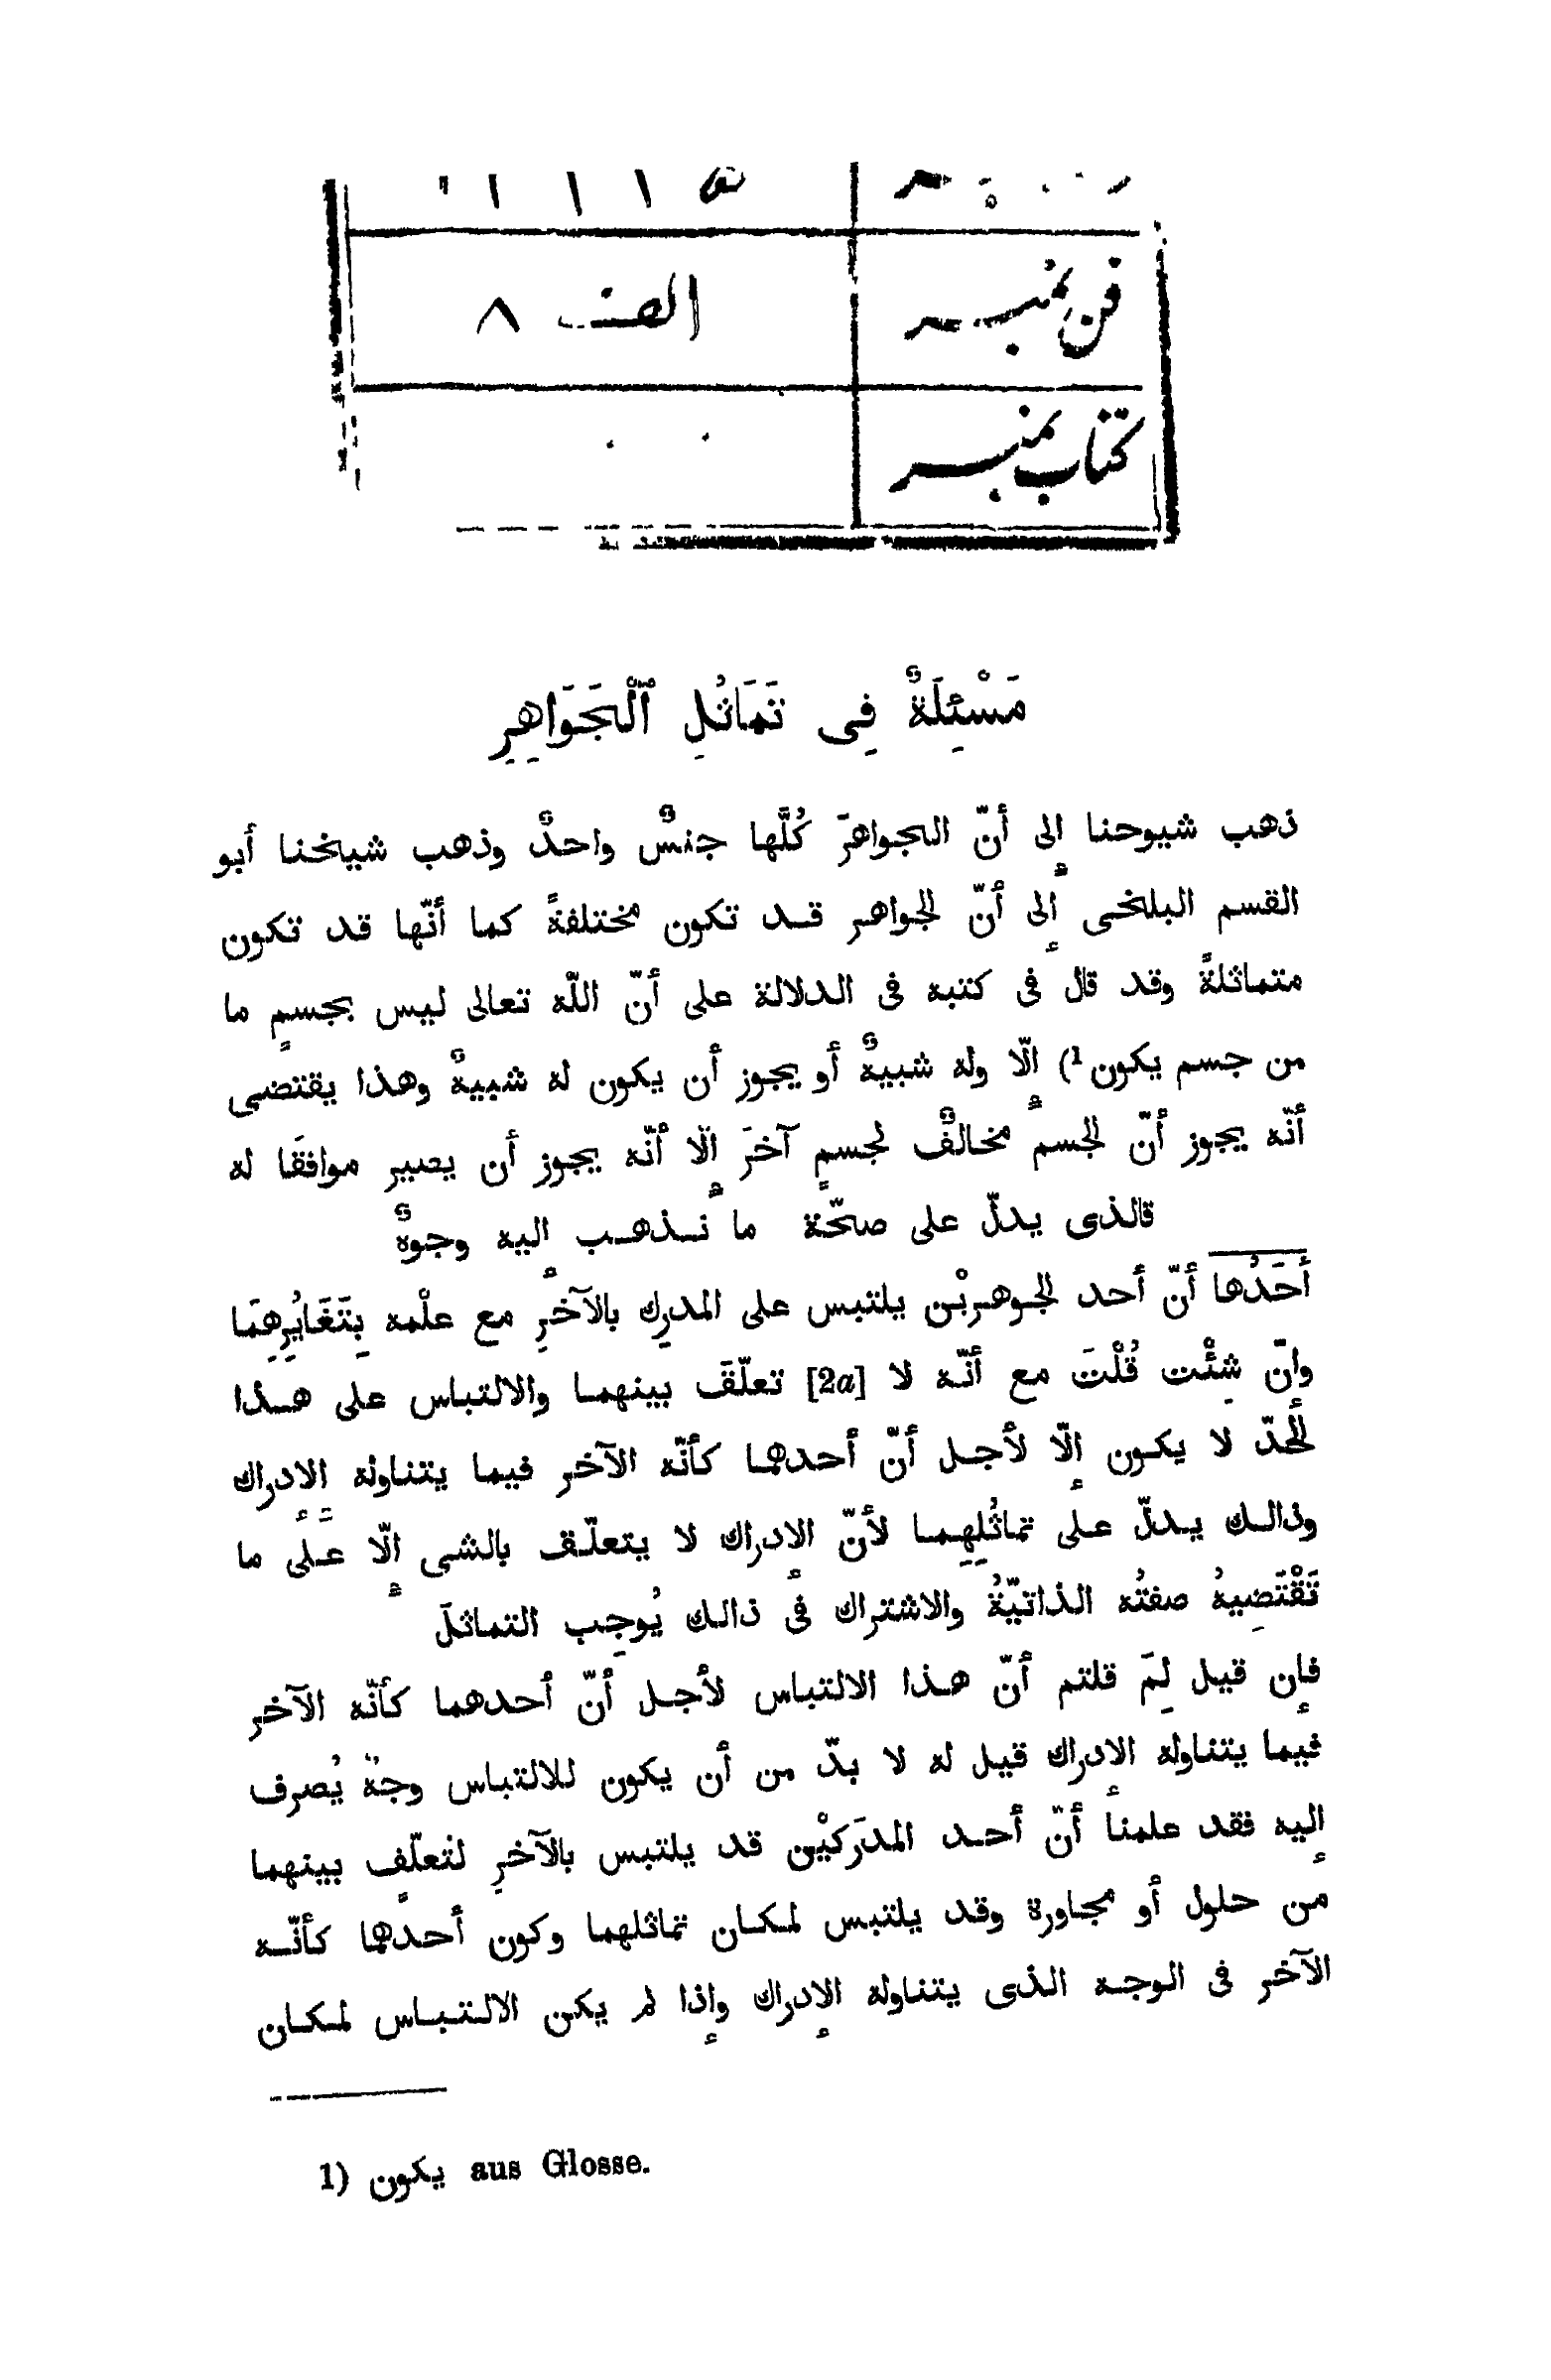 فن نمبر
كتاب نمبر
مَسْئِلَةٌ فِى تَمَاثُلِ ٱلْجَوَاهِرِ
ذهب شيوحنا إلى أنّ الجواهرَ كُلَّها جنسٌ واحدٌ وذهب شيخنا أبو
القسم البلخى إلى أنّ الجواهر قد تكون مختلفةً كما أنّها قد تكون
متماثلةً وقد قال فى كتبه فى الدلالة على أنّ اللّه تعالى ليس بجسمٍ ما
من جسم يكون1) إلّا وله شبيهٌ أو يجوز أن يكون له شبيهٌ وهذا يقتضى
أنّه يجوز أنّ الجسم مخالفٌ لجسمٍ آخرَ إلّا أنّه يجوز أن يصير موافقًا له
فالذى يدلّ على صحّة ما نذهب إليه وجوهٌ
أَحَدُها أنّ أحد الجوهريْن يلتبس على المدرِك بالآخرِ مع علْمه بِتَغَايُرِهِمَا
وإنّ شِئْت قُلْتَ مع أنّه لا [2a] تعلّقَ بينهما والالتباس على هذا
الحدّ لا يكون إلّا لأجل أنّ أحدهما كأنّه الآخر فيما يتناوله الإدراك
وذالك يدلّ على تماثُلِهِما لأنّ الإدراك لا يتعلّق بالشى إلّا عَلَى ما
تَقْتَضِيهُ صفتُه الذاتيّةُ والاشتراك فى ذالك يُوجِب التماثلَ
فإن قيل لِمَ قلتم أنّ هذا الالتباس لأجل أنّ أحدهما كأنّه الآخر
فيما يتناوله الإدراك قيل له لا بدّ من أن يكون للالتباس وجهٌ يُصرف
إليه فقد علمنا أنّ أحد المدرَكيْن قد يلتبس بالآخرِ لتعلّقٍ بينهما
من حلول أو مجاورة وقد يلتبس لمكان تماثلهما وكون أحدهما كأنّه
الآخر فى الوجه الذى يتناوله الإدراك وإذا لم يكن الالتباس لمكان
1) يكون aus Glosse.